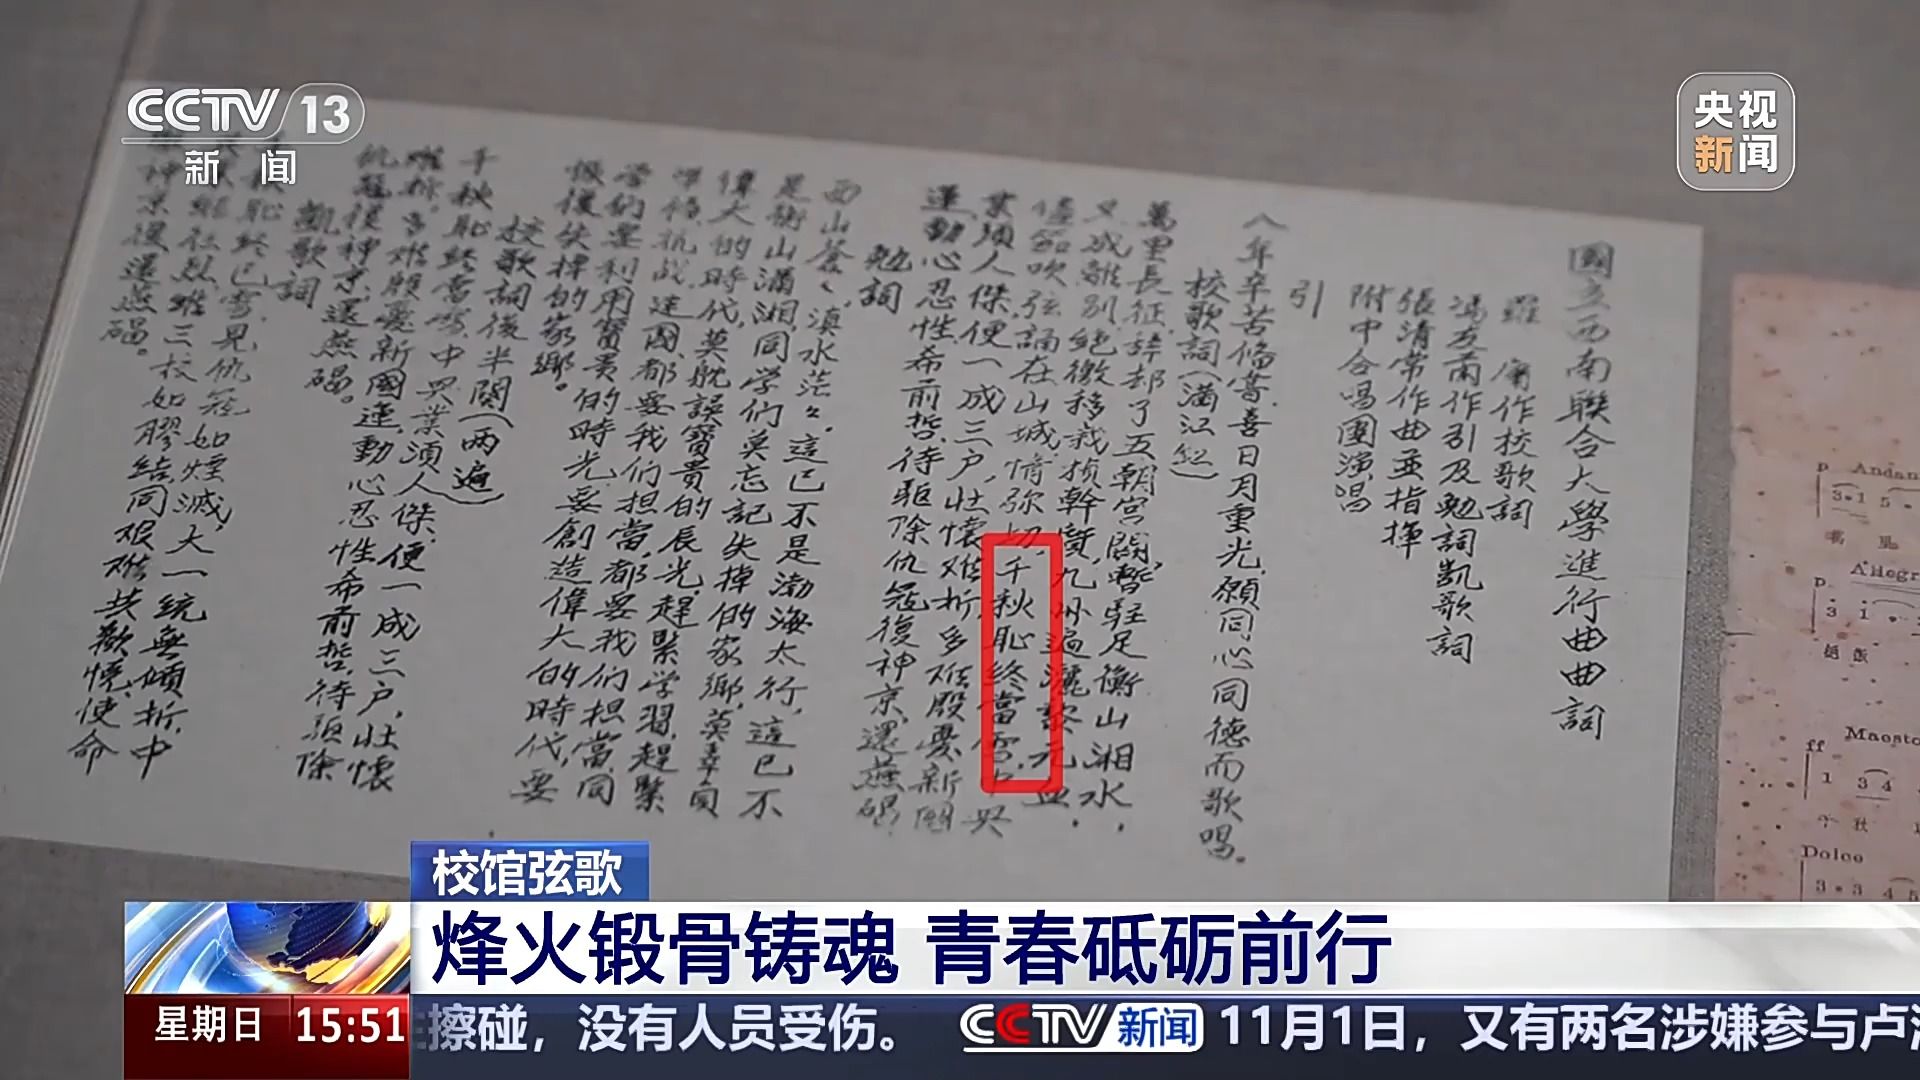 CCTV 13
新闻
央视
新闻
國立西南聯合大學進行曲曲詞
羅庸作校歌詞
馮友蘭作引及勉詞凱歌詞
張清常作曲並指揮
附中合唱團演唱
引
八年辛苦備嘗,喜日月重光,願同心同德而歌唱。
校歌詞(滿江紅)
萬里長征,辭却了五朝宮闕,暫駐足衡山湘水,
又成離別,絕徼移栽楨幹質,九州遍灑黎元血,
儘笳吹弦誦在山城,情弥切,千秋恥,終當雪,中興
業,須人傑,便一成三户,壯懷難折,多難殷憂新國
運,動心忍性希前哲,待驅除仇寇復神京,還燕碣。
勉詞
西山蒼々,滇水茫々,這已不是渤海太行,這已不
是衡山瀟湘,同学們莫忘記失掉的家鄉,莫辜負
偉大的時代,莫躭誤寶貴的辰光,趕緊学習,趕緊
準備,抗战建國,都要我們担當,都要我們担當,同
学們要利用寶貴的時光,要創造偉大的時代,要
恢復失掉的家鄉。
校歌詞後半闋(两遍)
千秋恥,終當雪,中興業,須人傑,便一成三户,壯懷
難折,多難殷憂新國運,動心忍性希前哲,待驅除
仇寇復神京,還燕碣。
凱歌詞
恥,終已雪,見仇寇如煙滅,大一統無傾折,中
維三校如膠結,同艱難共歡悅,使命
神京復還燕碣。
Andan
Allegr
Maesto
Dolce
校馆弦歌
烽火锻骨铸魂 青春砥砺前行
星期日 15:51
擦碰，没有人员受伤。 CCTV新闻 11月1日，又有两名涉嫌参与卢